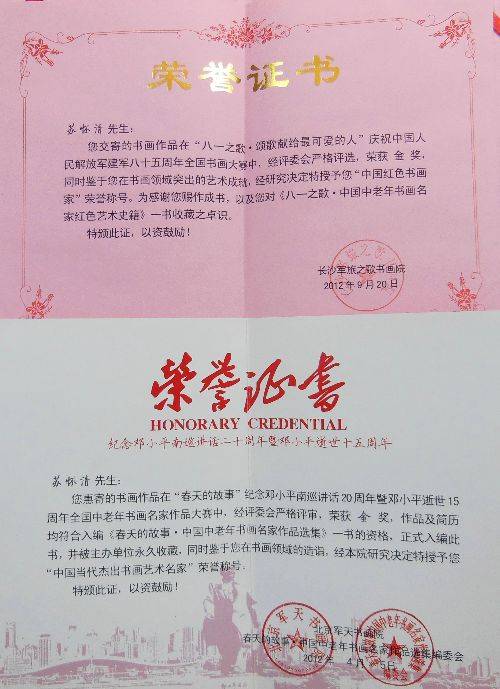 荣誉证书
苏怀清 先生：
您交寄的书画作品在“八一之歌·颂歌献给最可爱的人”庆祝中国人
民解放军建军八十五周年全国书画大赛中，经评委会严格评选，荣获 金 奖，
同时鉴于您在书画领域突出的艺术成就，经研究决定特授予您“中国红色书画
家”荣誉称号。为感谢您赐作成书，以及您对《八一之歌·中国中老年书画名
家红色艺术史籍》一书收藏之卓识。
特颁此证，以资鼓励！
长沙军旅之歌书画院
2012 年 9 月 20 日
荣誉证书
HONORARY CREDENTIAL
纪念邓小平南巡讲话二十周年暨邓小平逝世十五周年
苏怀清 先生：
您惠寄的书画作品在“春天的故事”纪念邓小平南巡讲话20周年暨邓小平逝世15
周年全国中老年书画名家作品大赛中，经评委会严格评审，荣获 金 奖，作品及简历
均符合入编《春天的故事·中国中老年书画名家作品选集》一书的资格，正式入编此
书，并被主办单位永久收藏，同时鉴于您在书画领域的造诣，经本院研究决定特授予您
“中国当代杰出书画艺术名家”荣誉称号。
特颁此证，以资鼓励！
北京军天书画院
春天的故事·中国中老年书画名家作品选集编委会
2012 年 4 月 5 日